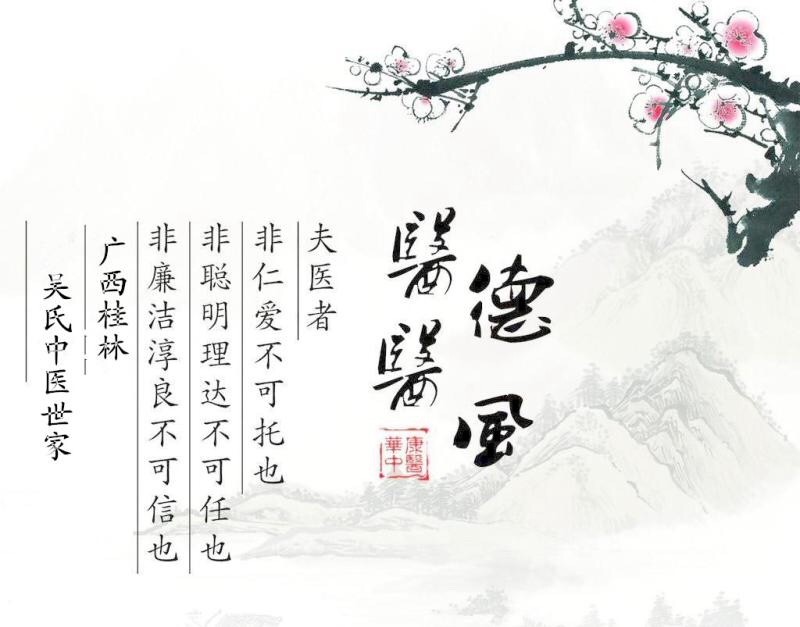 醫德
醫風
康醫
華中
夫医者
非仁爱不可托也
非聪明理达不可任也
非廉洁淳良不可信也
广西桂林
吴氏中医世家